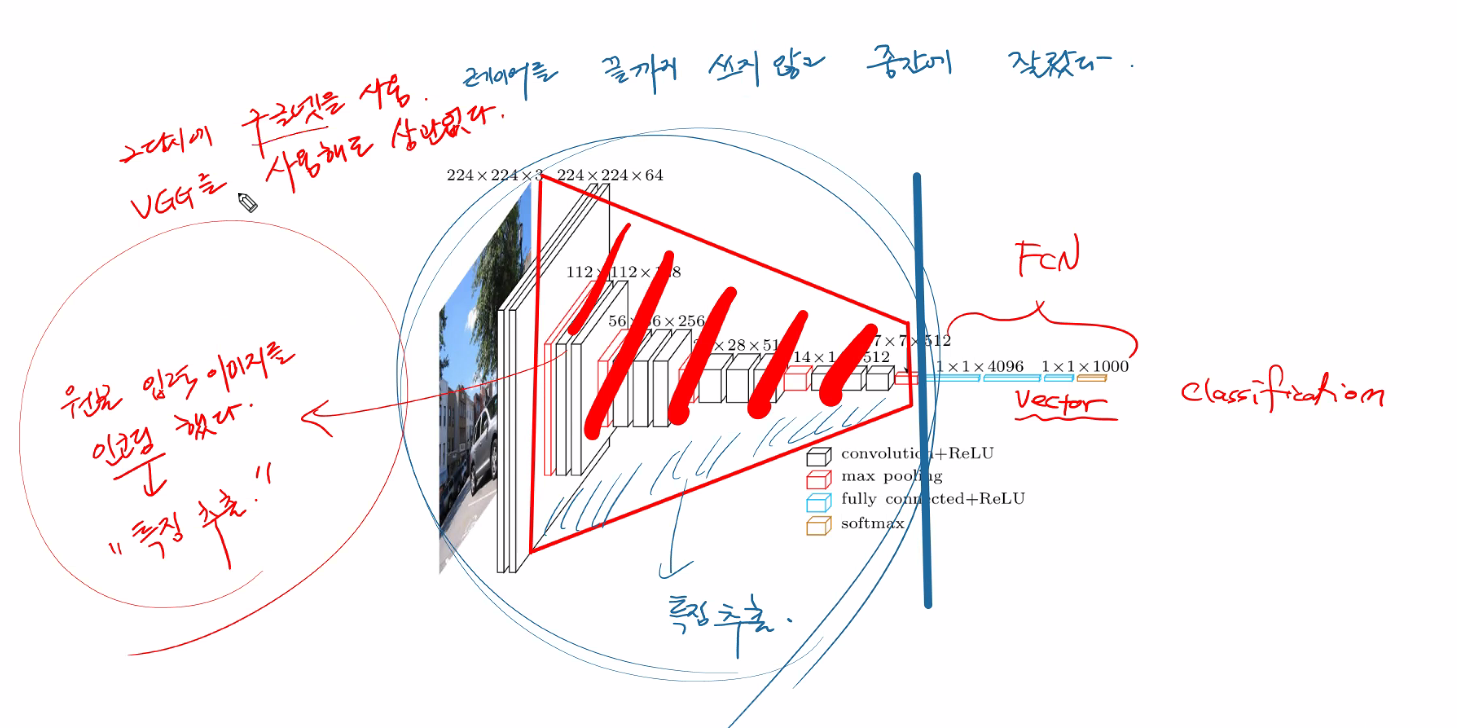 레이어를 끝까지 쓰지 않고 중간에 잘랐다.
그당시에 구글넷을 사용.
VGG를 사용해도 상관없다.
224×224×3 224×224×64
112×112×128
56×56×256
28×28×512
14×14×512
7×7×512
1×1×4096 1×1×1000
FCN
Vector
classification
convolution+ReLU
max pooling
fully connected+ReLU
softmax
원본 입력 이미지를
인코딩 했다.
"특징 추출."
특징 추출.